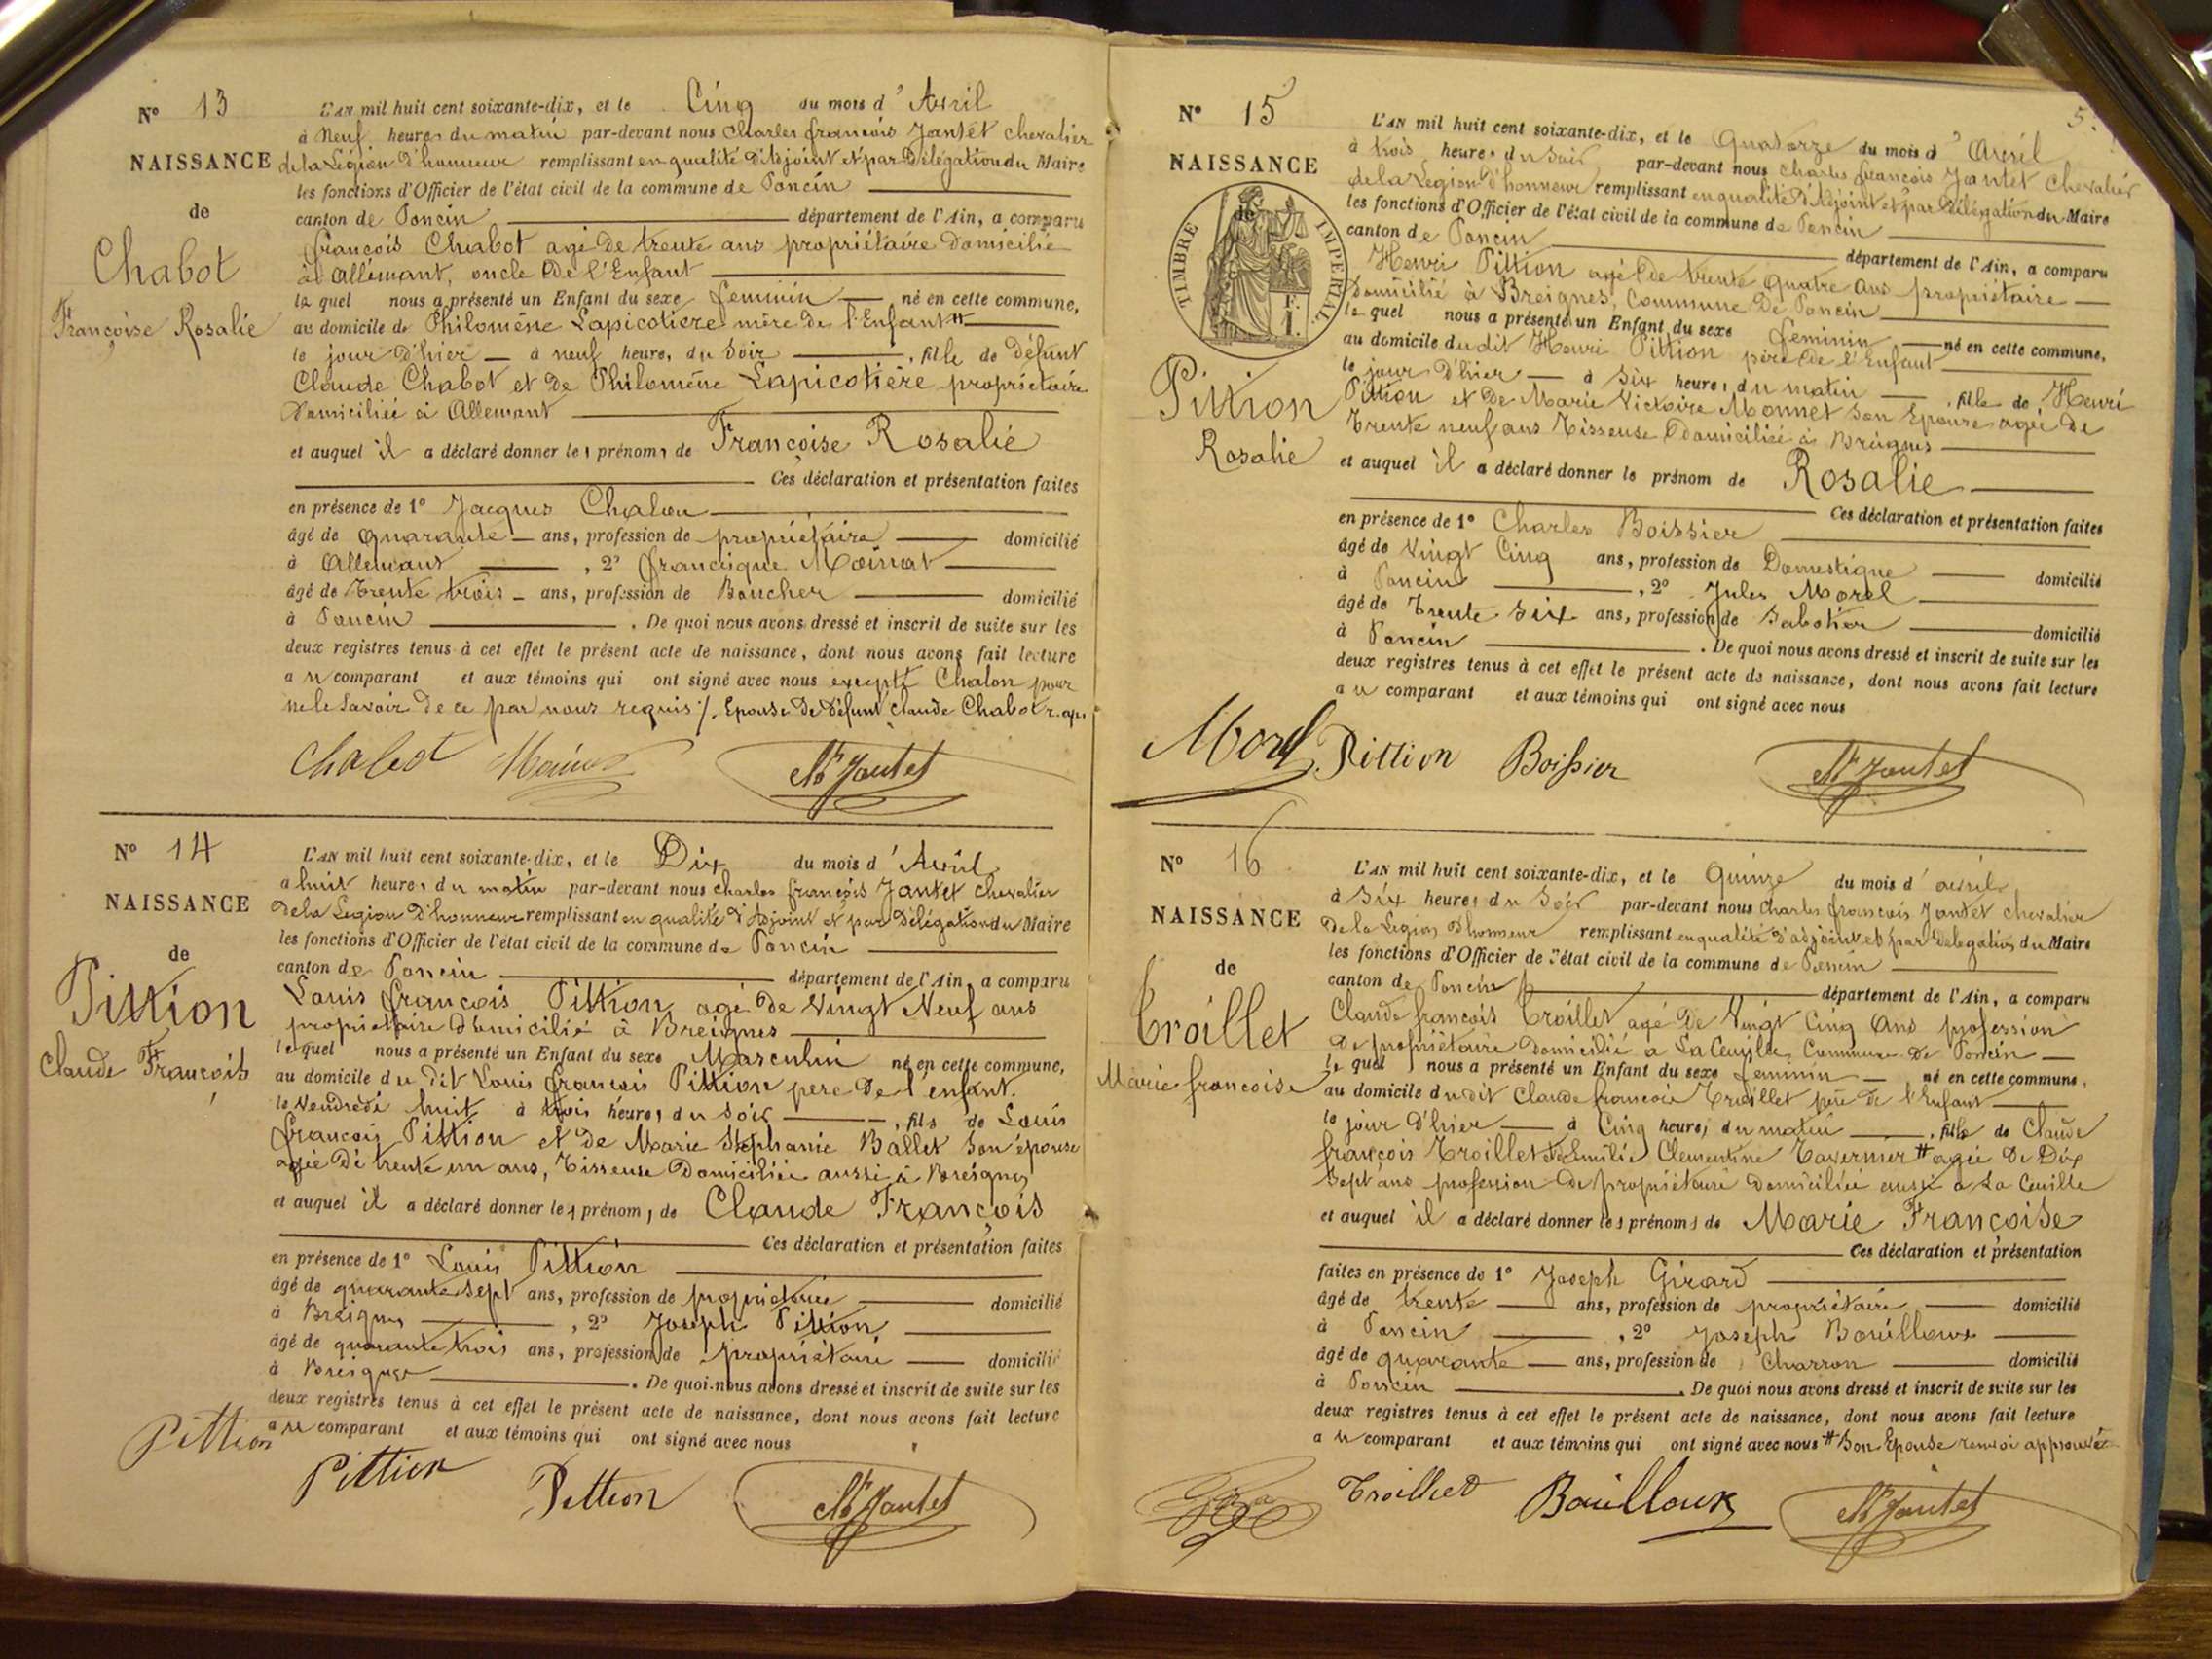 N° 13
NAISSANCE
de
Chabot
Françoise Rosalie
L'AN mil huit cent soixante-dix, et le Cinq du mois d'Avril
à Neuf heures du matin par-devant nous Charles françois Jantet chevalier
de la Légion d'honneur remplissant en qualité d'Adjoint et par Délégation du Maire
les fonctions d'Officier de l'état civil de la commune de Poncin
canton de Poncin département de l'Ain, a comparu
françois Chabot agé de trente ans propriétaire domicilié
à allémant, oncle de l'Enfant
le quel nous a présenté un Enfant du sexe feminin né en cette commune,
au domicile de Philomène Lapicotiere mère de l'Enfant #
le jour d'hier à neuf heure, du Soir, fille de défunt
Claude Chabot et de Philomène Lapicotière propriétaire
Domiciliée à Allemant
et auquel il a déclaré donner les prénoms de Françoise Rosalie
Ces déclaration et présentation faites
en présence de 1° Jacques Chalon
âgé de quarante ans, profession de propriétaire domicilié
à Allemant, 2° francisque Moirnat
âgé de Trente trois ans, profession de Boucher domicilié
à Poncin. De quoi nous avons dressé et inscrit de suite sur les
deux registres tenus à cet effet le présent acte de naissance, dont nous avons fait lecture
au comparant et aux témoins qui ont signé avec nous excepté Chalon pour
ne le Savoir de ce par nous requis /. Epouse de Défunt Claude Chabot
Chabot Jantet
N° 14
NAISSANCE
de
Pittion
Claude François
L'AN mil huit cent soixante-dix, et le Dix du mois d'Avril
a huit heures du matin par-devant nous charles françois Jantet chevalier
De la Legion D'honneur remplissant en qualité d'Adjoint et par Délégation du Maire
les fonctions d'Officier de l'état civil de la commune de Poncin
canton de Poncin département de l'Ain, a comparu
Louis françois Pittion agé de Vingt Neuf ans
propriétaire domicilié à Breignes
le quel nous a présenté un Enfant du sexe Masculin né en cette commune,
au domicile du dit Louis françois Pittion pere de l'enfant.
le Vendredi huit à trois heures du Soir, fils de Louis
françois Pittion et de Marie Stephanie Ballet Son épouse
agée de trente un ans, Tisseuse Domiciliée aussi à Breignes
et auquel il a déclaré donner les prénoms de Claude François
Ces déclaration et présentation faites
en présence de 1° Louis Pittion
âgé de quarante Sept ans, profession de propriétaire domicilié
à Breignes, 2° Joseph Pittion
âgé de quarante trois ans, profession de propriétaire domicilié
à Breignes. De quoi nous avons dressé et inscrit de suite sur les
deux registres tenus à cet effet le présent acte de naissance, dont nous avons fait lecture
au comparant et aux témoins qui ont signé avec nous
Pittion Pittion Pittion Jantet
5.
N° 15
NAISSANCE
de
TIMBRE IMPERIAL
Pittion
Rosalie
L'AN mil huit cent soixante-dix, et le Quatorze du mois d'Avril
à trois heures du Soir par-devant nous Charles françois Jantet Chevalier
de la Legion d'honneur remplissant en qualité d'Adjoint et par Délégation du Maire
les fonctions d'Officier de l'état civil de la commune de Poncin
canton de Poncin département de l'Ain, a comparu
Henri Pittion agé de trente quatre ans propriétaire
Domicilié à Breignes, Commune de Poncin
le quel nous a présenté un Enfant du sexe feminin né en cette commune,
au domicile du dit Henri Pittion père de l'Enfant
le jour d'hier à Six heures du matin, fille de Henri
Pittion et de Marie Victoire Monnet Son Epouse agée de
Trente neuf ans Tisseuse domiciliée à Breignes
et auquel il a déclaré donner le prénom de Rosalie
Ces déclaration et présentation faites
en présence de 1° Charles Boissier
âgé de Vingt Cinq ans, profession de Domestique domicilié
à Poncin, 2° Jules Morel
âgé de Trente Six ans, profession de Sabotier domicilié
à Poncin. De quoi nous avons dressé et inscrit de suite sur les
deux registres tenus à cet effet le présent acte de naissance, dont nous avons fait lecture
au comparant et aux témoins qui ont signé avec nous
Morel Pittion Boissier Jantet
N° 16
NAISSANCE
de
Troillet
Marie francoise
L'AN mil huit cent soixante-dix, et le Quinze du mois d'avril
à Six heures du Soir par-devant nous Charles françois Jantet chevalier
De la Legion D'honneur remplissant en qualité d'adjoint et par délégation du Maire
les fonctions d'Officier de l'état civil de la commune de Poncin
canton de Poncin département de l'Ain, a comparu
Claude françois Troillet agé de Vingt Cinq Ans profession
De propriétaire domicilié a La Cueille, Commune de Poncin
le quel nous a présenté un Enfant du sexe feminin né en cette commune,
au domicile du dit Claude francois Troillet père de l'Enfant
le jour d'hier à Cinq heures du matin, fille de Claude
françois Troillet et de Emilie Clementine Tavernier # agée de Dix
Sept ans profession de propriétaire domiciliée aussi a La Cueille
et auquel il a déclaré donner les prénoms de Marie Françoise
Ces déclaration et présentation
faites en présence de 1° Joseph Girard
âgé de trente ans, profession de propriétaire domicilié
à Poncin, 2° Joseph Bouilloux
âgé de quarante ans, profession de Charron domicilié
à Poncin. De quoi nous avons dressé et inscrit de suite sur les
deux registres tenus à cet effet le présent acte de naissance, dont nous avons fait lecture
au comparant et aux témoins qui ont signé avec nous # Son Epouse renvoi approuvé
Troillet Bouilloux Jantet